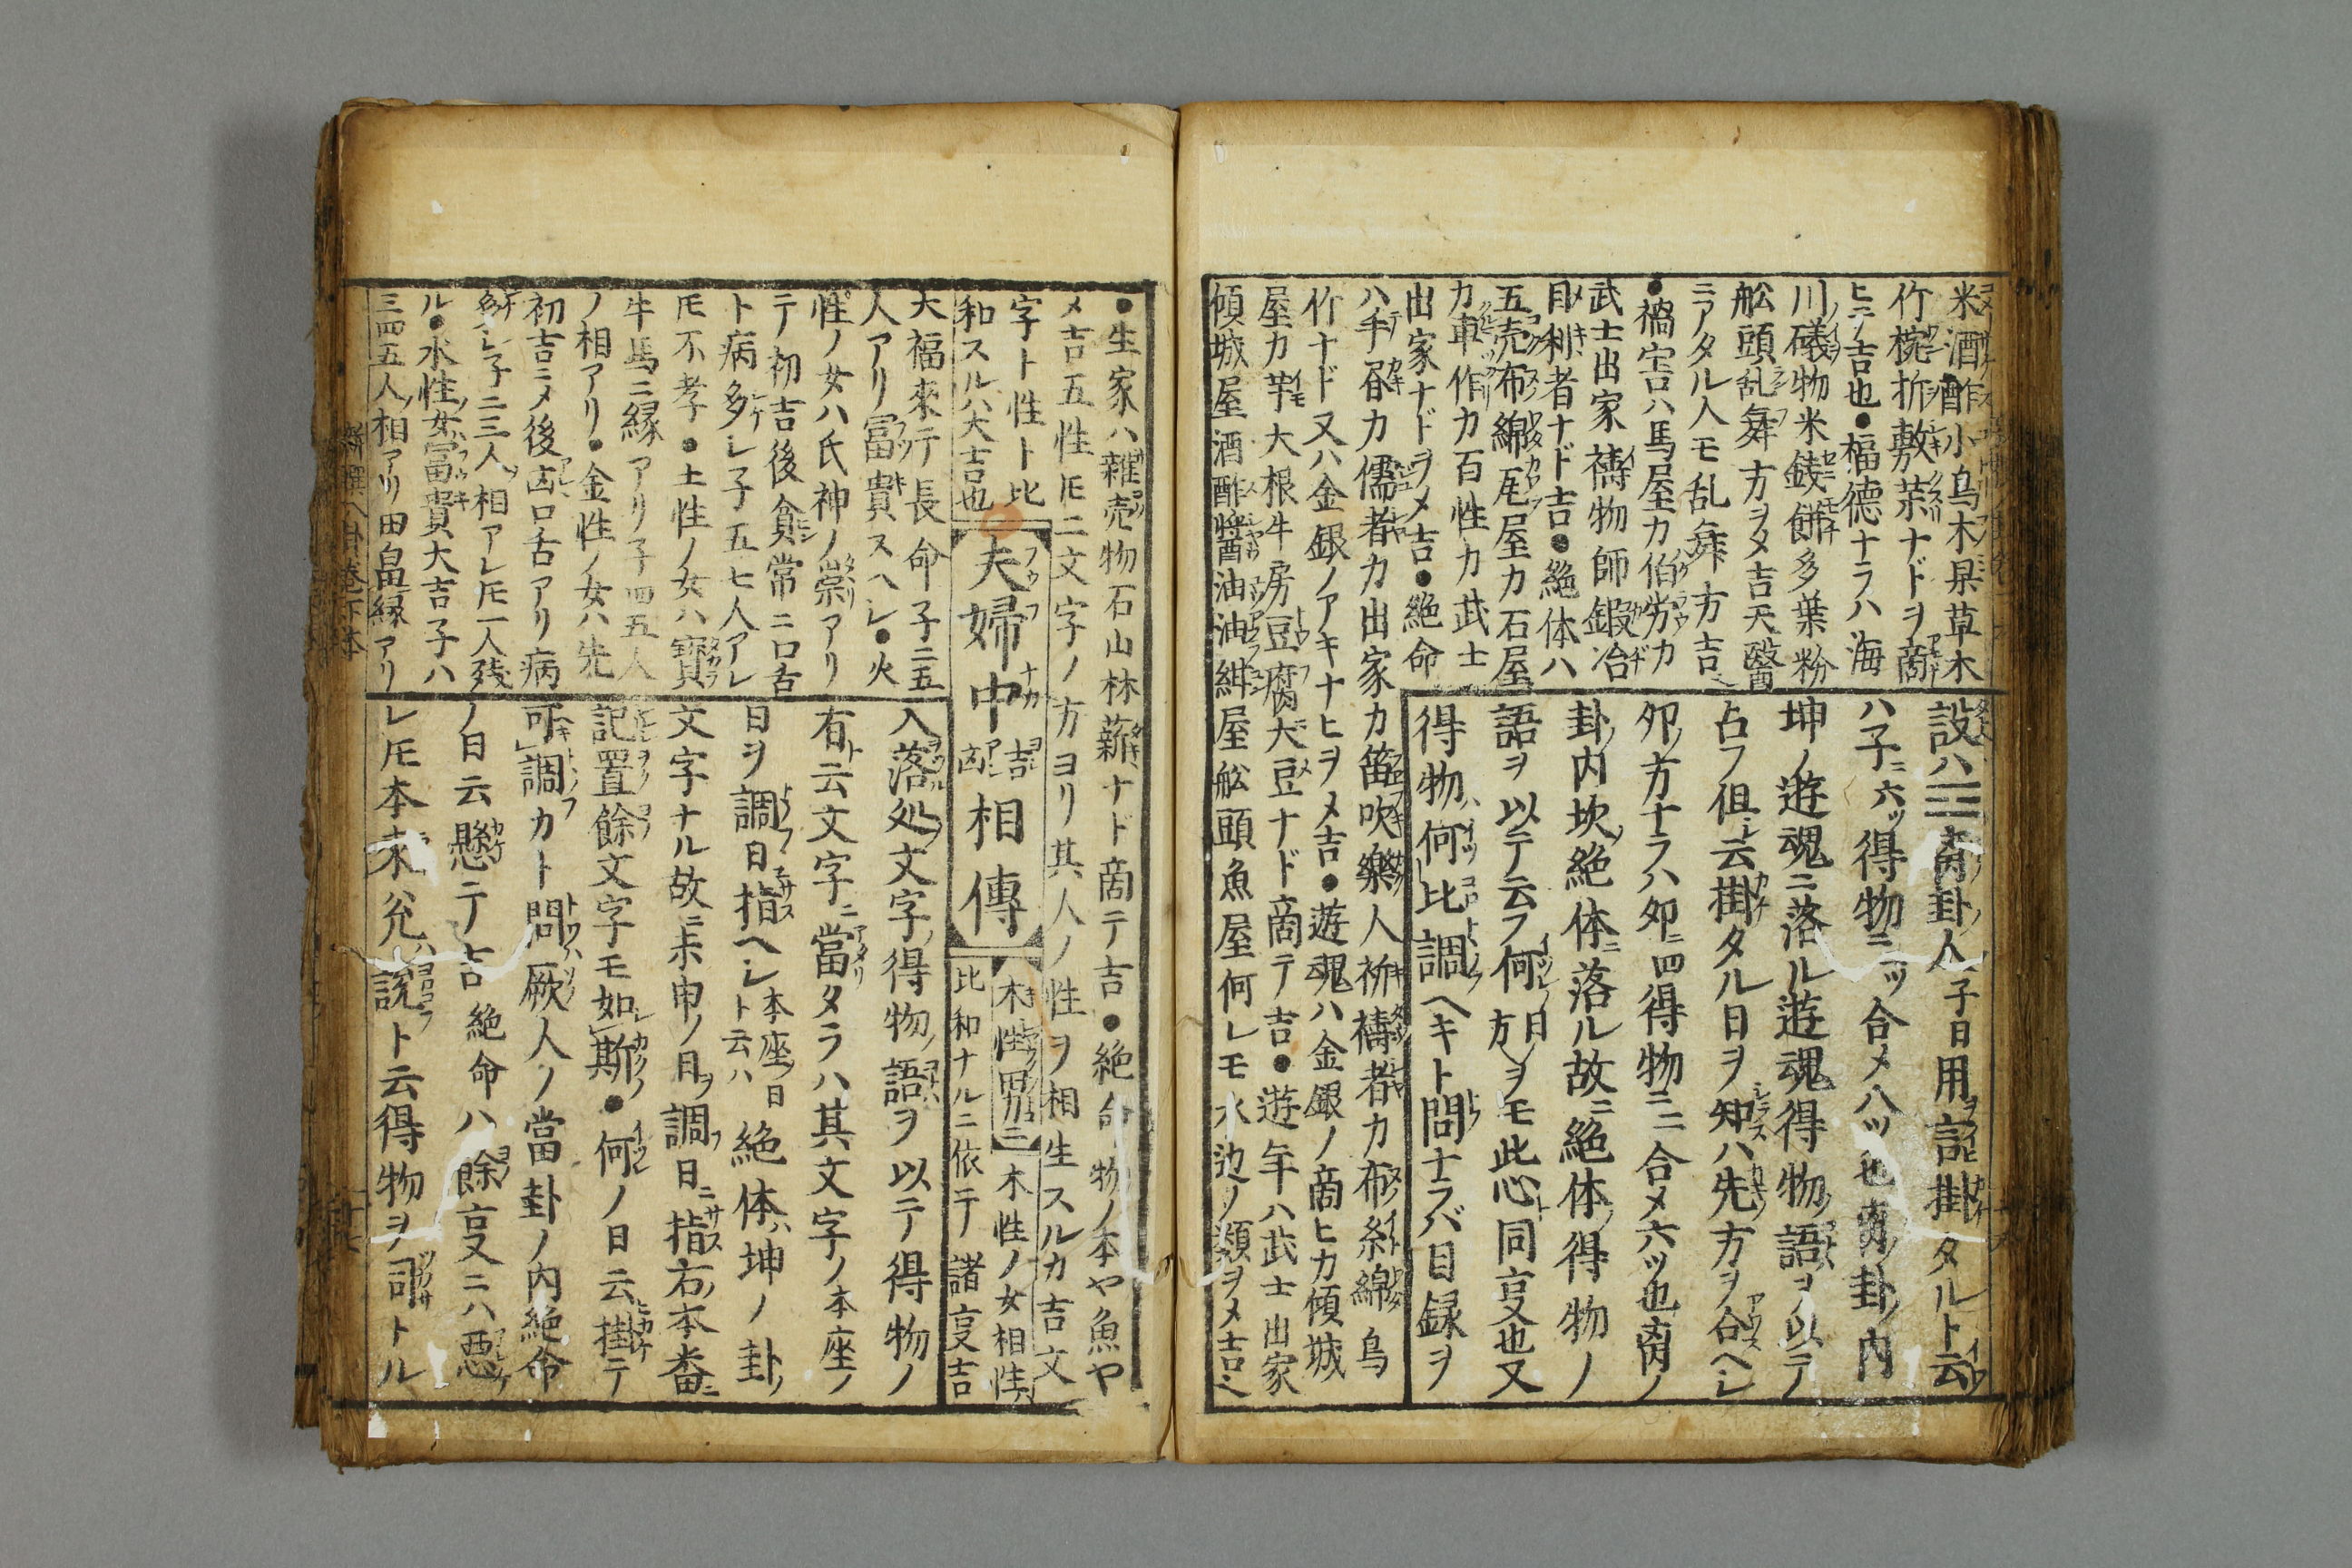 米酒酢小鳥木具草木
竹椀折敷茶ナドヲ商
ヒテ吉也●福德ナラハ海
川礒物米錢餅多葉粉
舩頭乱舞方ヲメ吉天醫
ニアタル人モ乱舞方吉
●禍害ハ馬屋カ伯労カ
武士出家禱物師鍜冶
目利者ナド吉●絶体ハ
五売布綿尾屋カ石屋
カ車作カ百性カ武士
出家ナドヲメ吉●絶命
ハ手習カ儒者カ出家カ笛吹樂人祈禱者カ布糸綿烏
竹ナド又ハ金銀ノアキナヒヲメ吉●遊魂ハ金銀ノ商ヒカ傾城
屋カ芋大根牛房豆腐大豆ナド商テ吉●遊年ハ武士出家
傾城屋酒酢醬油油絓屋舩頭魚屋何レモ水辺ノ類ヲメ吉
設ハ☲离卦人子日用記掛タルト云
ハ子ニ六ツ得物ニツ合メ八ツ也离卦ノ内
坤ノ遊魂ニ落ル遊魂得物ノ語ヲ以テ
占フ但シ云掛タル日ヲ知ハ先方ヲ合ヘシ
夘ノ方ナラハ夘ニ四得物ニ二合メ六ツ也离ノ
卦ノ内坎絶体ニ落ル故ニ絶体ノ得物ノ
語ヲ以テ云フ何ノ日方ヲモ此心同亊也又
得物何比調ヘキト問ナラバ目録ヲ
●生家ハ雜売物石山林薪ナド商テ吉●絶命物ノ本や魚や
メ吉五性ニ文字ノ方ヨリ其人ノ性ヲ相生スルカ吉文
字ト性ト比
和スルハ大吉也
夫婦中吉凶相傳
木性男三 木性ノ女相性
比和ナルニ依テ諸亊吉
大福來テ長命子二五
人アリ富貴スヘシ●火
性ノ女ハ氏神ノ祟アリ
テ初吉後貧常ニ口舌
ト病多シ子五七人アレ
𪜈不孝●土性ノ女ハ寳
牛馬ニ縁アリ子四五人
ノ相アリ●金性ノ女ハ先
初吉ニメ後凶口舌アリ病
多シ子二三人ノ相アレ𪜈一人殘
ル●水性ノ女ハ富貴大吉子ハ
三四五人ノ相アリ田畠縁アリ
入落処ノ文字ノ得物ノ語ヲ以テ得物ノ
有ト云文字ニ當タラハ其文字ノ本座ノ
日ヲ調日指ヘシ本座ノ日ト云ハ絶体ハ坤ノ卦ノ
文字ナル故ニ未申ノ日ヲ調日ニ指右本畨ニ
記置餘文字モ如斯●何ノ日云掛テ
可調カト問ハ厥人ノ當卦ノ内絶命
ノ日云懸テ吉絶命ハ餘亊ニハ悪
レ𪜈本来兊ハ説ト云得物ヲ司トル